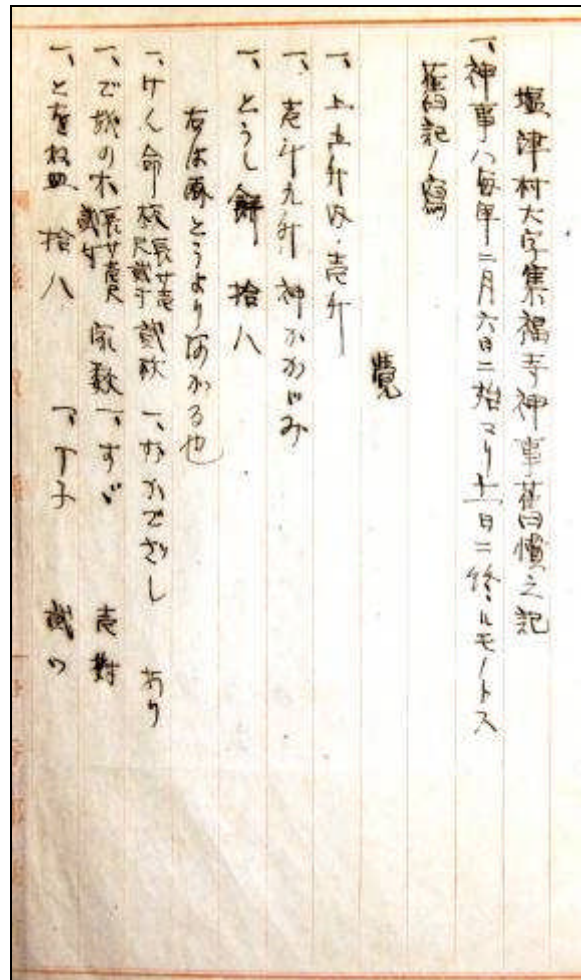 塩津村大字集福寺神事舊慣之記
一、神事ハ毎年二月六日ニ始マリ十一日ニ終ルモノトス
舊記ノ寫
覚
一、上五升 壱升
一、壱斗九升 神かがみ
一、とうし餅 拾八
右は とうより はかる也
一、けん命 板長サ壱尺 貳寸 貳枚 一、なかでざし あり
一、で の木 長サ壱尺 貳寸 家数 一、すゞ 壱對
一、とを 皿 拾八 一、丁子 貳ツ